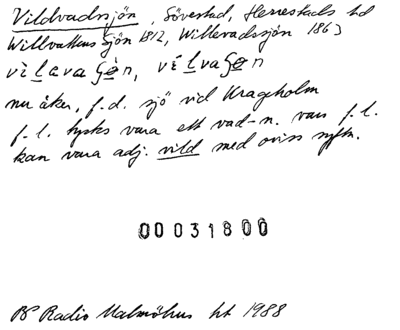 Vildvadssjön, Sövestad, Herrestads hd
Willvattens Sjön 1812, Willevadssjön 1863
nu åker, f.d. sjö vid Krageholm
f.l. tycks vara ett vad-n. vars f.l.
kan vara adj. vild med oviss syftn.
00031800
BP Radio Malmöhus ht 1988